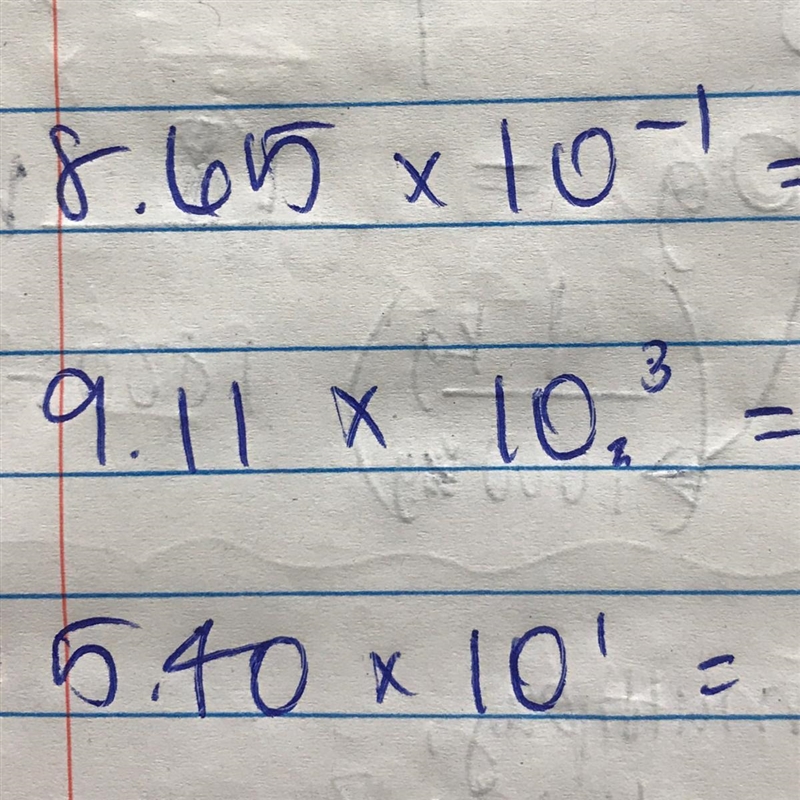 8.65 x 10⁻¹ =
9.11 x 10³ =
5.40 x 10¹ =